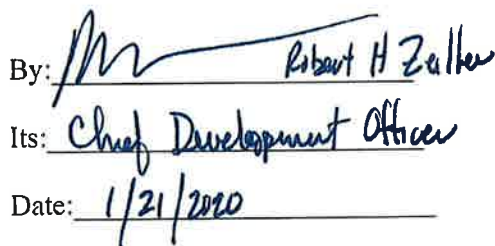 By: Robert H Zeiller
Its: Chief Development Officer
Date: 1/21/2020